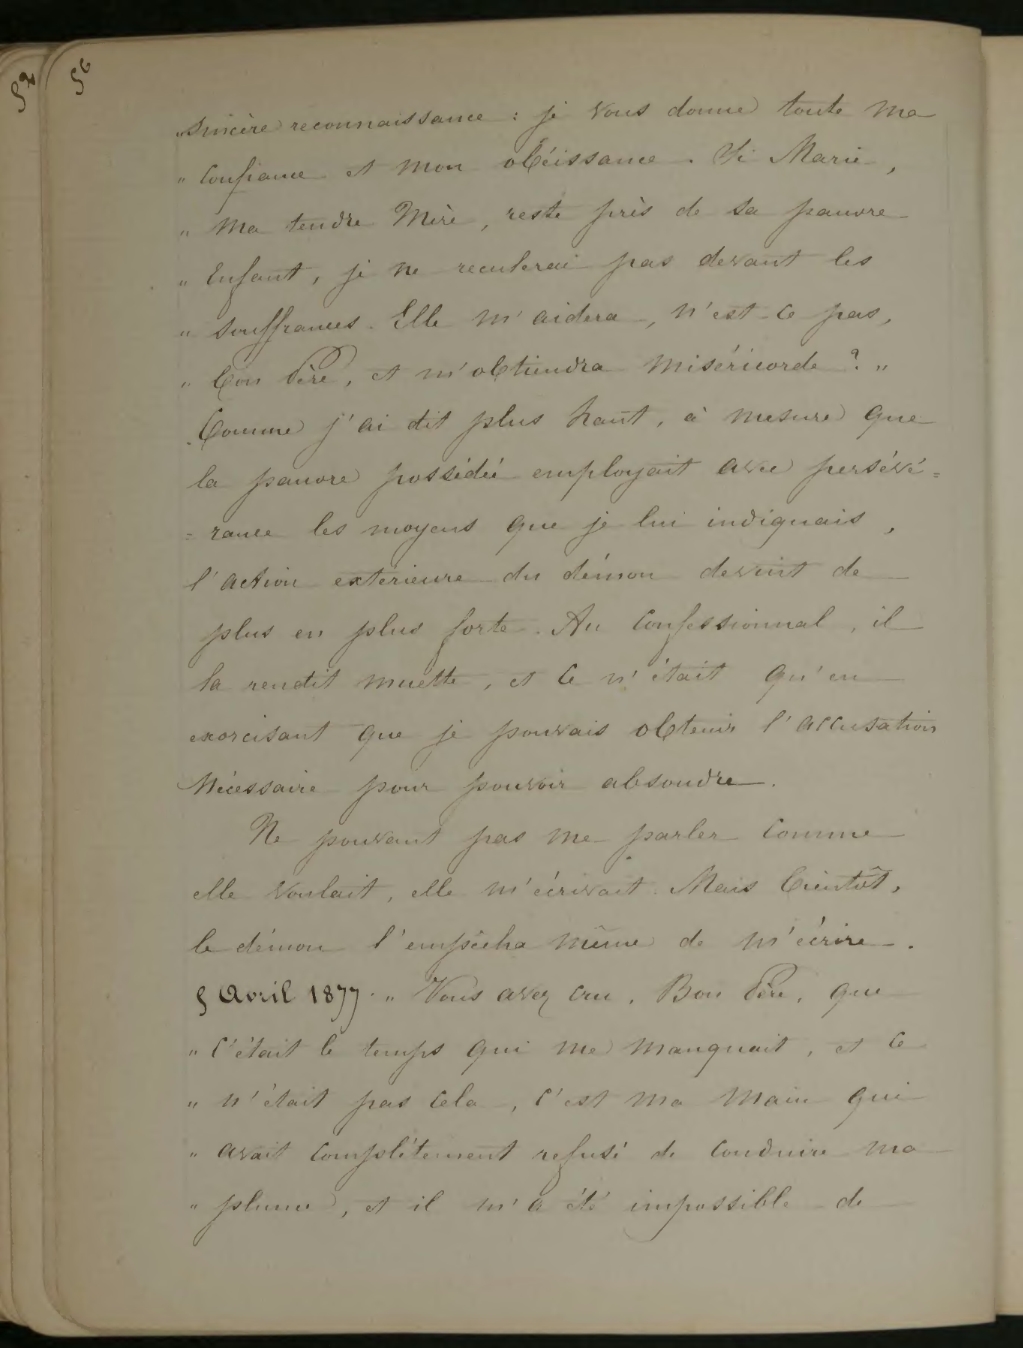 56
„ sincère reconnaissance : je vous donne toute ma
„ confiance et mon obéissance. Si Marie,
„ ma tendre Mère, reste près de sa pauvre
„ Enfant, je ne reculerai pas devant les
„ souffrances. Elle m'aidera, n'est-ce pas,
„ bon Père, et m'obtiendra miséricorde ? „
Comme j'ai dit plus haut, à mesure que
la pauvre possédée employait avec persévé=
=rance les moyens que je lui indiquais,
l'action extérieure du démon devint de
plus en plus forte. Au confessionnal, il
la rendit muette, et ce n'était qu'en
exorcisant que je pouvais obtenir l'accusation
nécessaire pour pouvoir absoudre.
Ne pouvant pas me parler comme
elle voulait, elle m'écrivait. Mais bientôt,
le démon l'empêcha même de m'écrire.
5 Avril 1877. „ Vous avez cru, Bon Père, que
„ c'était le temps qui me manquait, et ce
„ n'était pas cela, c'est ma main qui
„ avait complètement refusé de conduire ma
„ plume, et il m'a été impossible de